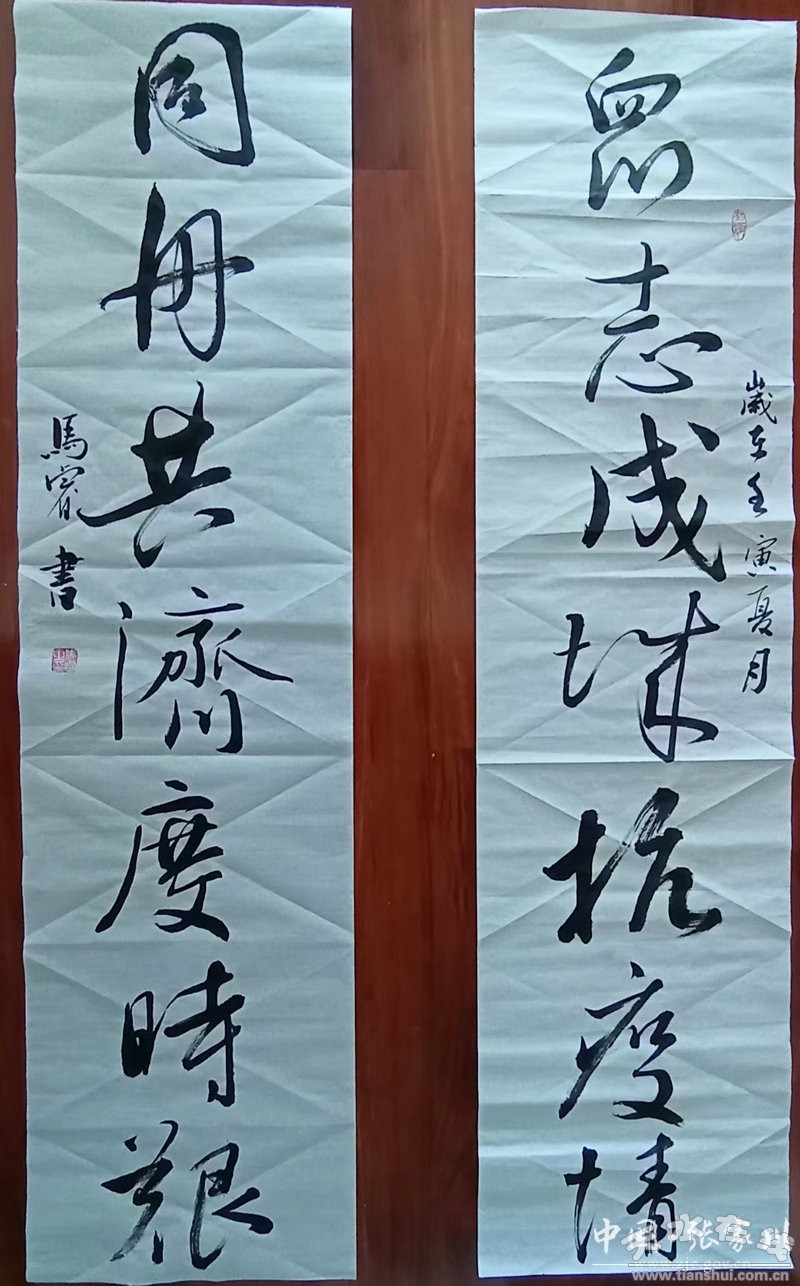 眾志成城抗疫情
歲在壬寅夏月
同舟共濟度時艱
馬
書
www.tianshui.com.cn